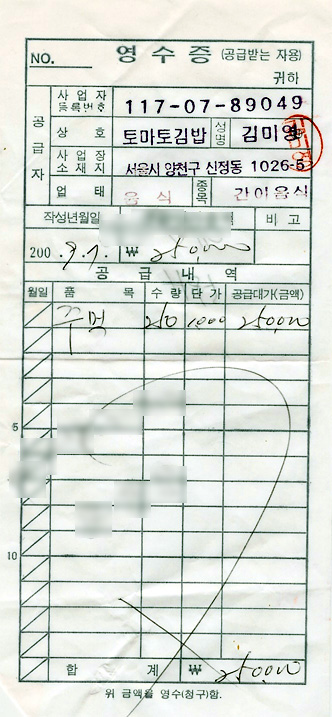 NO. 영 수 증 (공급받는 자용)
귀하
공급자
사업자등록번호 117-07-89049
상호 토마토김밥 성명 김미영
사업장소재지 서울시 양천구 신정동 1026-5
업태 음식 종목 간이음식
작성년월일 비고
200 9.9.1. ₩ 250,000
공 급 내 역
월일 품 목 수량 단가 공급대가(금액)
주먹 250 1,000 250,000
5
10
합 계 ₩ 250,000
위 금액을 영수(청구)함.